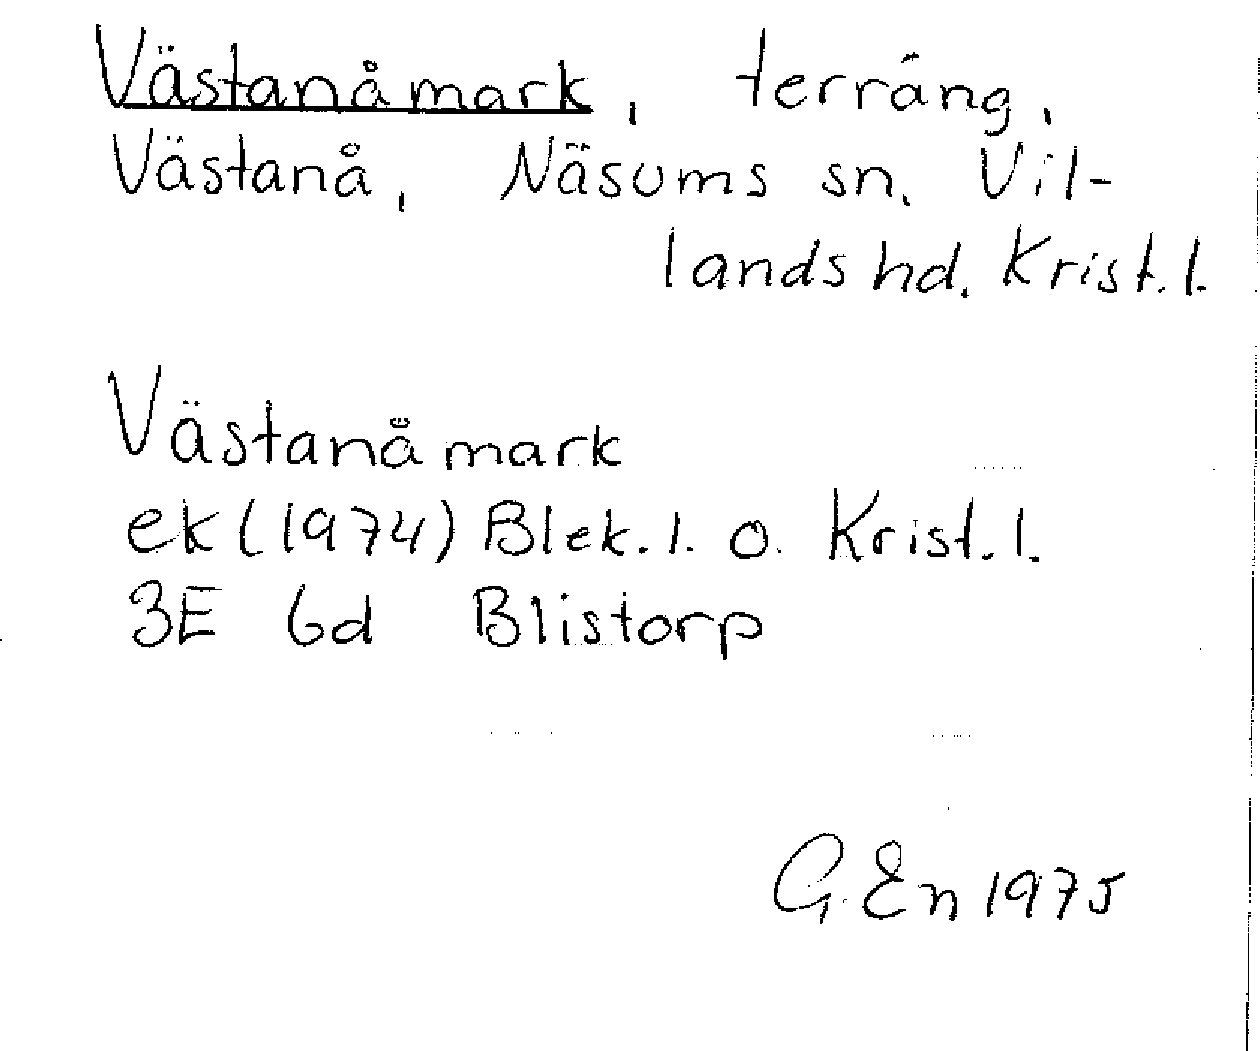 Västanåmark, terräng,
Västanå, Näsums sn. Vil-
lands hd. Krist. l.
Västanåmark
ek (1974) Blek. l. o. Krist. l.
3E 6d Blistorp
G. En 1975